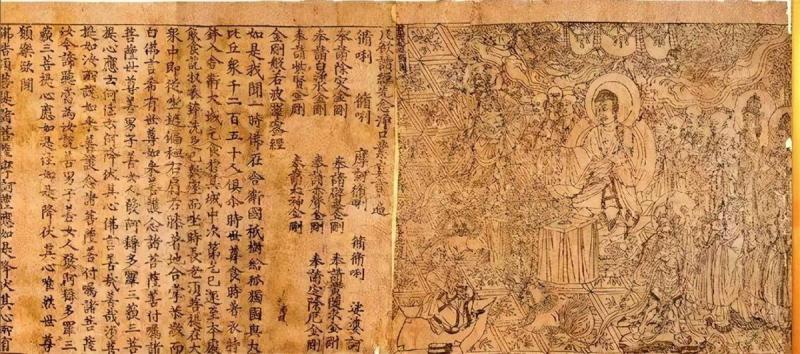 凡欲讀經先念淨口業真言一遍
脩唎 脩唎 摩訶脩唎 脩脩唎 娑婆訶
奉請除災金剛 奉請辟毒金剛 奉請黃隨求金剛
奉請白淨水金剛 奉請赤聲金剛 奉請定除厄金剛
奉請紫賢金剛 奉請大神金剛
金剛般若波羅蜜經
如是我聞一時佛在舍衛國祇樹給孤獨園與大
比丘衆千二百五十人俱尒時世尊食時著衣持
鉢入舍衛大城乞食於其城中次第乞已還至本處
飯食訖收衣鉢洗足已敷座而坐時長老須菩提在大
衆中即從坐起偏袒右肩右膝著地合掌恭敬而
白佛言希有世尊如來善護念諸菩薩善付囑諸
菩薩世尊善男子善女人發阿耨多羅三藐三菩
提心應云何住云何降伏其心佛言善哉善哉須菩
提如汝所說如來善護念諸菩薩善付囑諸菩薩
汝今諦聽當為汝說善男子善女人發阿耨多羅三
藐三菩提心應如是住如是降伏其心唯然世尊
願樂欲聞
佛告須菩提諸菩薩摩訶薩應如是降伏其心所有